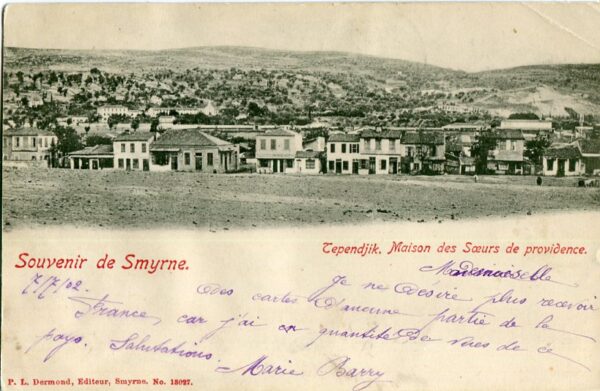 Tependjik. Maison des Sœurs de providence.
Souvenir de Smyrne.
Mademoiselle
7/7/02. Je ne désire plus recevoir
des cartes d'aucune partie de la
France, car j'ai en quantité des vues de ce
pays. Salutations.
Marie Barry
P. L. Dermond, Editeur, Smyrne. No. 15027.